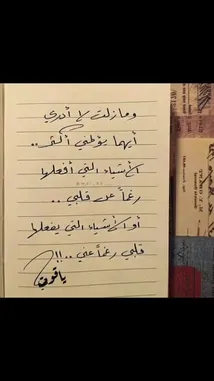 وما زلت لا أدري
أيهما يؤلمني أكثر..
الأشياء التي أفعلها
رغماً عن قلبي..
أو الأشياء التي يفعلها
قلبي رغماً عني..!!
ياقوت